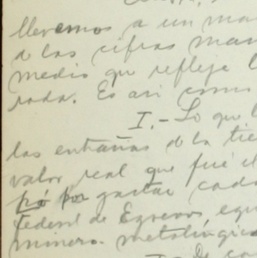 llevemos a un ma
de las cifras man
medio que refleje l
rada. Es asi como
I.- Lo que l
las entrañas de la tie
valor real que fué el
por gastar cada
Federal de Egresos, equ
minero-metalúrgica